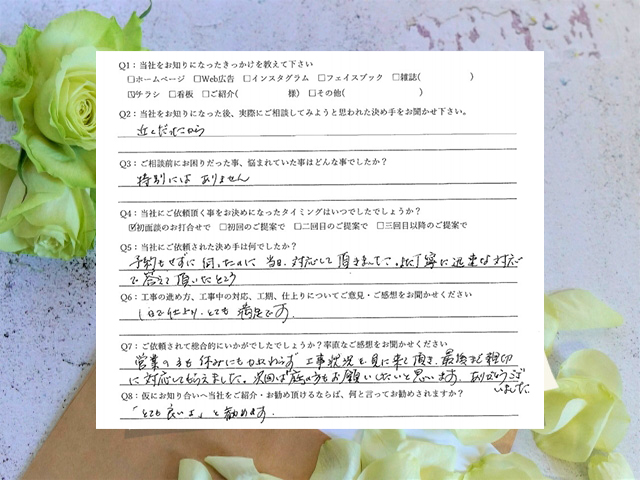 Q1：当社をお知りになったきっかけを教えて下さい
□ホームページ □Web広告 □インスタグラム □フェイスブック □雑誌( )
☑チラシ □看板 □ご紹介( 様) □その他( )
Q2：当社をお知りになった後、実際にご相談してみようと思われた決め手をお聞かせ下さい。
近くだったから
Q3：ご相談前にお困りだった事、悩まれていた事はどんな事でしたか？
特別には ありません
Q4：当社にご依頼頂く事をお決めになったタイミングはいつでしたでしょうか？
☑初面談のお打合せで □初回のご提案で □二回目のご提案で □三回目以降のご提案で
Q5：当社にご依頼された決め手は何でしたか？
予約もせずに 伺ったのに 当日、対応して頂きまして、丁寧に迅速な対応
で答えて頂いたところ
Q6：工事の進め方、工事中の対応、工期、仕上りについてご意見・ご感想をお聞かせください
1日で仕上り、とても 満足です。
Q7：ご依頼されて総合的にいかがでしたでしょうか？率直なご感想をお聞かせください
営業の方も休みにもかかわらず 工事状況を見に来て頂き、最後まで親切
に対応してもらえました。次回は庭の方もお願いしたいと思います。ありがとうござ
いました。
Q8：仮にお知り合いへ当社をご紹介・お勧め頂けるならば、何と言ってお勧めされますか？
「とても良いよ」と勧めます。